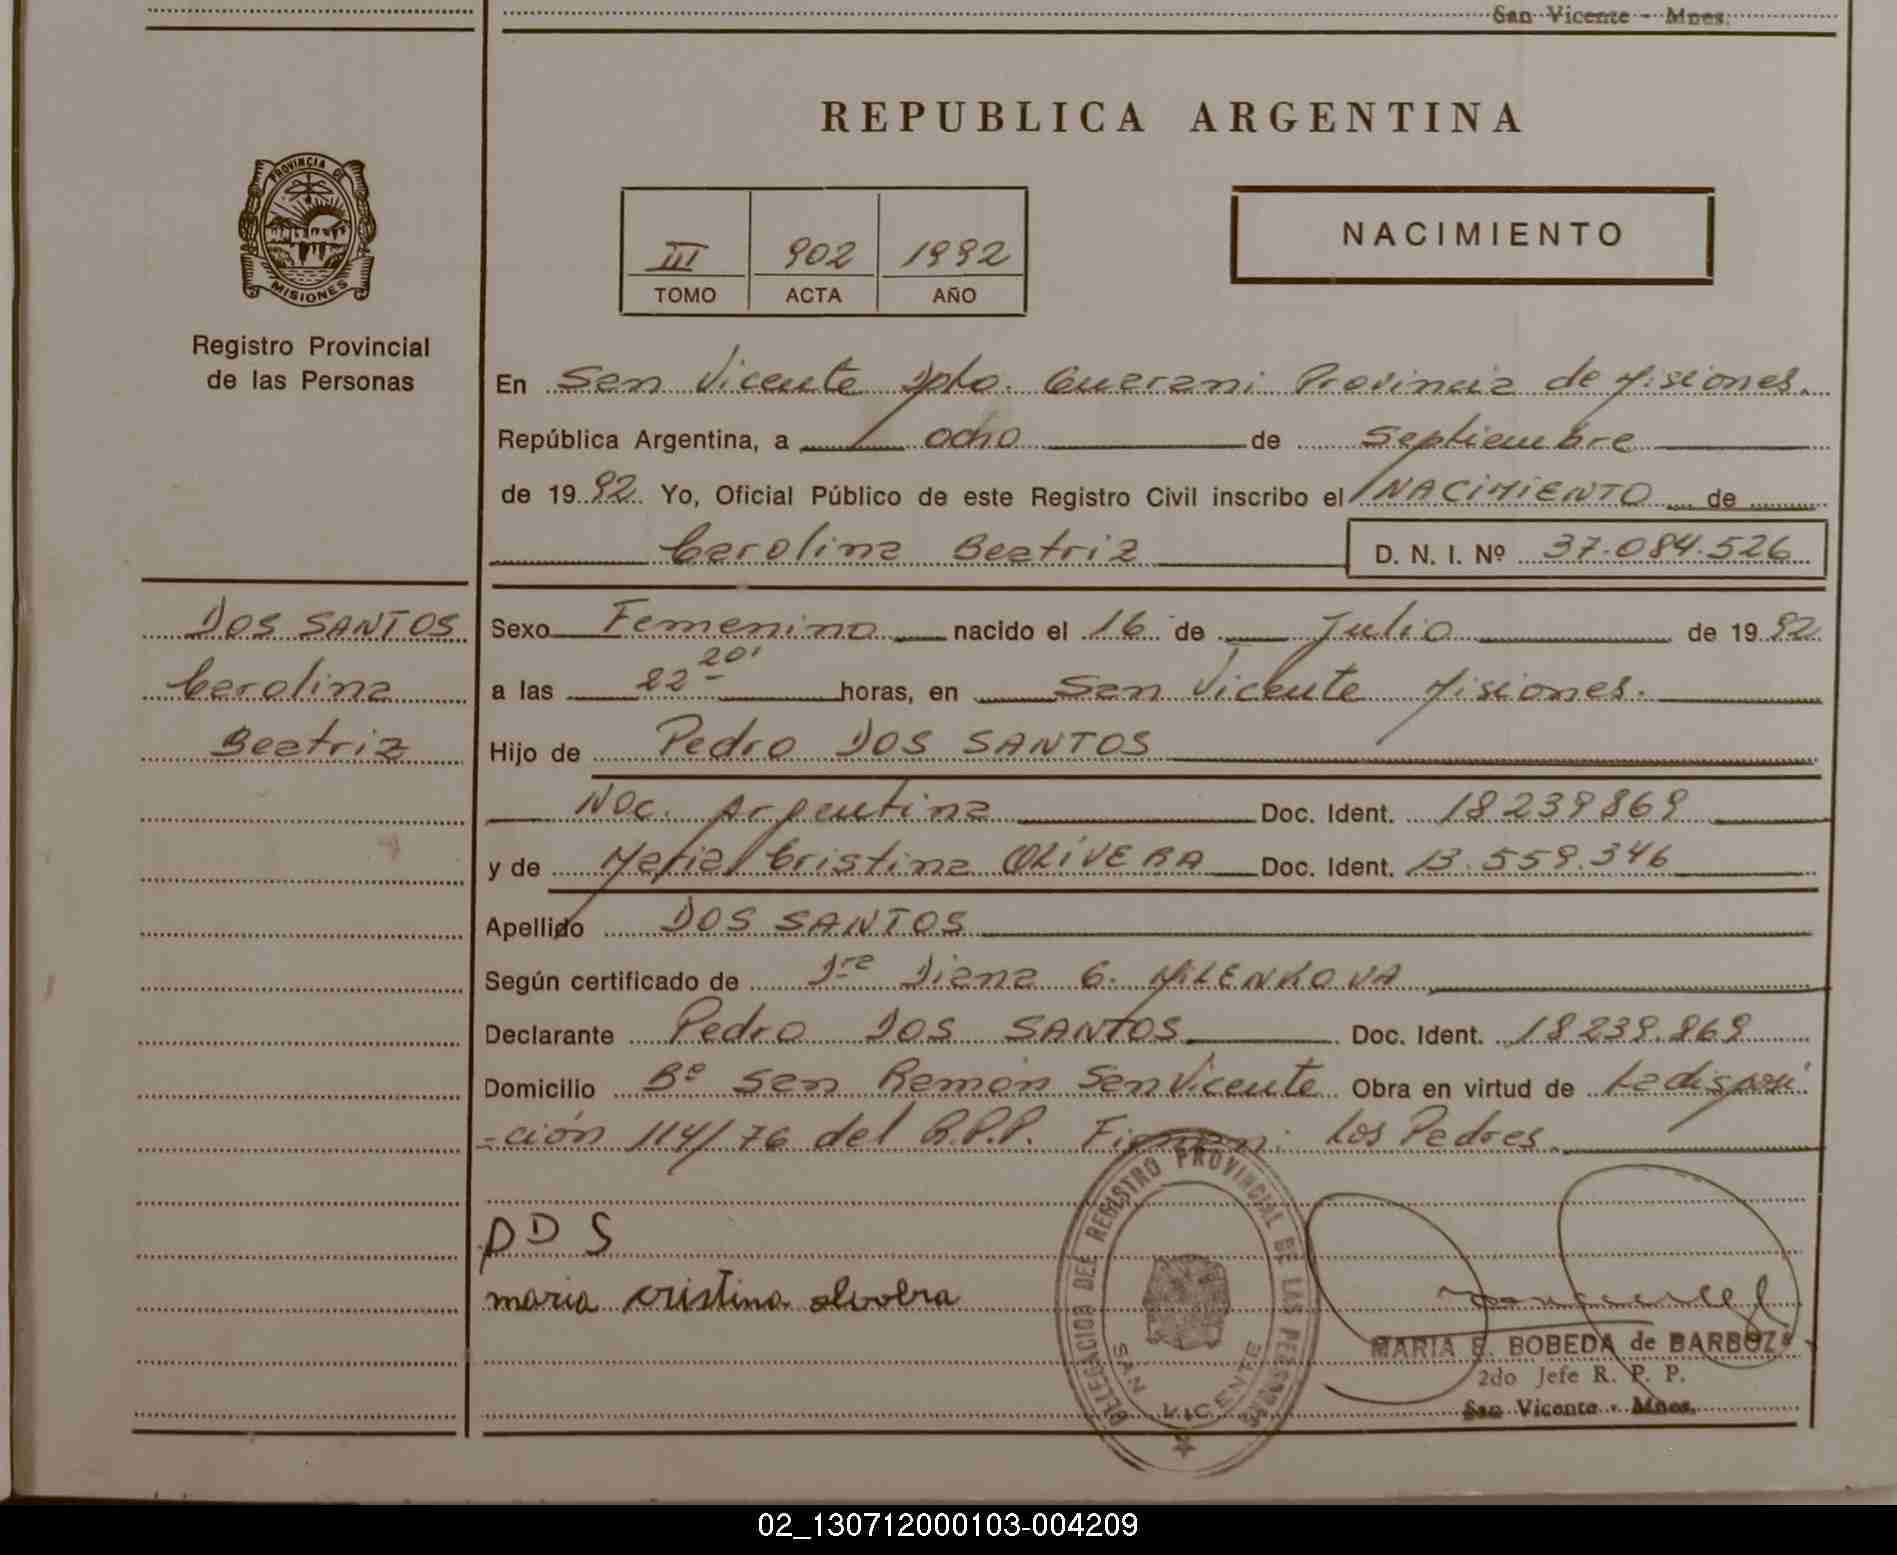 San Vicente - Mnes.
REPUBLICA ARGENTINA
PROVINCIA DE
MISIONES
Registro Provincial
de las Personas
III 902 1992
TOMO ACTA AÑO
NACIMIENTO
En San Vicente Dpto. Guarani Provincia de Misiones.
República Argentina, a ocho de Septiembre
de 1992 Yo, Oficial Público de este Registro Civil inscribo el NACIMIENTO de
Carolina Beatriz D. N. I. Nº 37.084.526
DOS SANTOS
Carolina
Beatriz
Sexo Femenino nacido el 16 de Julio de 1992
a las 22 20' horas, en San Vicente Misiones.
Hijo de Pedro DOS SANTOS
Nac. Argentina Doc. Ident. 18239869
y de Maria Cristina OLIVERA Doc. Ident. 13.559.346
Apellido DOS SANTOS
Según certificado de Dra Diana G. MILENKOVA
Declarante Pedro DOS SANTOS Doc. Ident. 18239.869
Domicilio Bº San Ramón San Vicente Obra en virtud de La disposi
-ción 114/76 del R.P.P. Firman: Los Padres
PDS
maria cristina olivera
DELEGACION DEL REGISTRO PROVINCIAL DE LAS PERSONAS
SAN VICENTE
MARIA E. BOBEDA de BARBOZA
2do Jefe R. P. P.
San Vicente - Mnes.
02_130712000103-004209